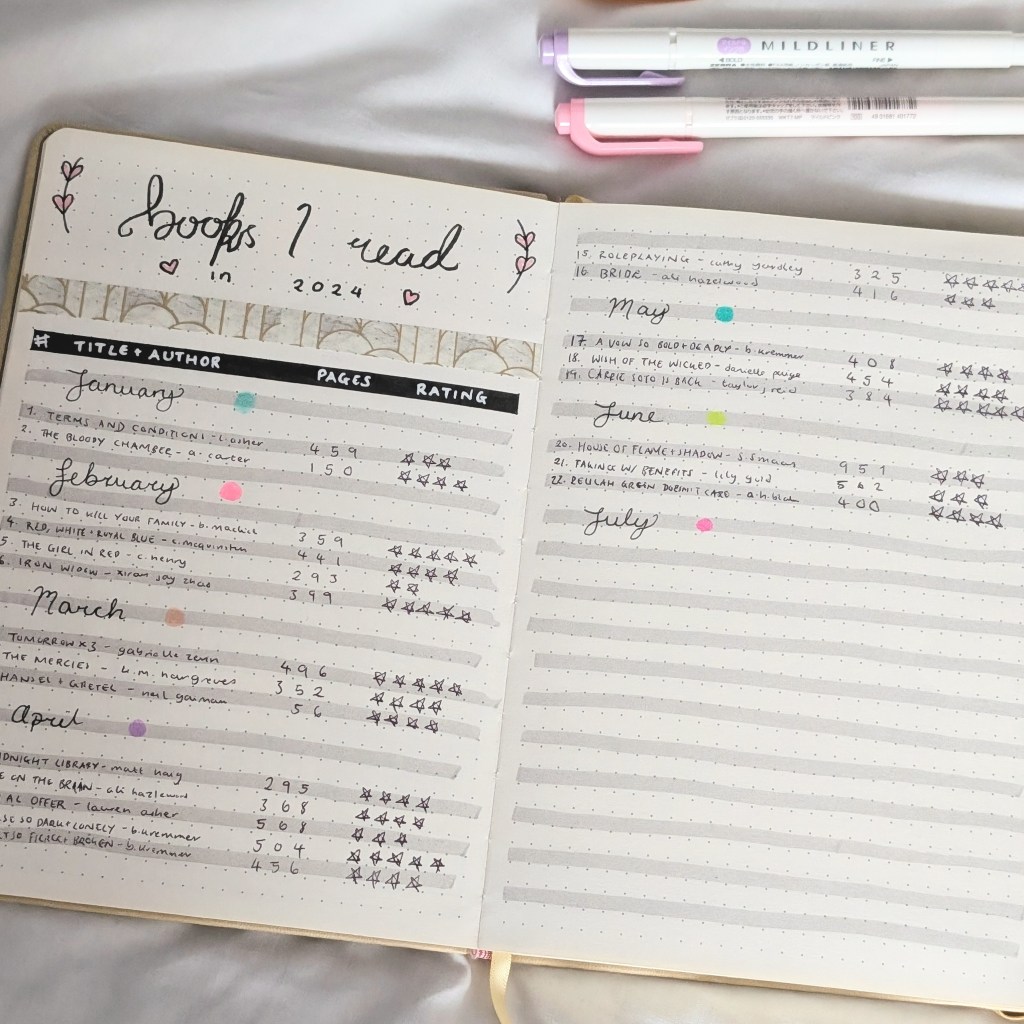 MILDLINER
BOLD
FINE
books I read
in 2024
# TITLE + AUTHOR PAGES RATING
January
1. TERMS AND CONDITIONS - l. asher 459
2. THE BLOODY CHAMBER - a. carter 150
february
3. HOW TO KILL YOUR FAMILY - b. mackie 359
4. RED, WHITE + ROYAL BLUE - c. mcquinston 441
5. THE GIRL IN RED - c. henry 293
6. IRON WIDOW - xiran jay zhao 399
March
TOMORROW X3 - gabrielle zevin 496
THE MERCIES - k.m. hargreves 352
HANSEL + GRETEL - neil gaiman 56
April
IDNIGHT LIBRARY - matt haig 295
E ON THE BRAIN - ali hazlewood 368
AL OFFER - lauren asher 568
SE SO DARK + LONELY - b. kremmer 504
T SO FIERCE + BROKEN - b. kremmer 456
15. ROLEPLAYING - cathy yardley 325
16. BRIDE - ali hazelwood 416
May
17. A VOW SO BOLD + DEADLY - b. kremmer 408
18. WISH OF THE WICKED - danielle paige 454
19. CARRIE SOTO IS BACK - taylor j reid 384
June
20. HOUSE OF FLAME + SHADOW - S. Smaas 951
21. FAKING W/ BENEFITS - lily gold 542
22. BEULAH GREEN DOESN'T CARE - a.h. 400
July